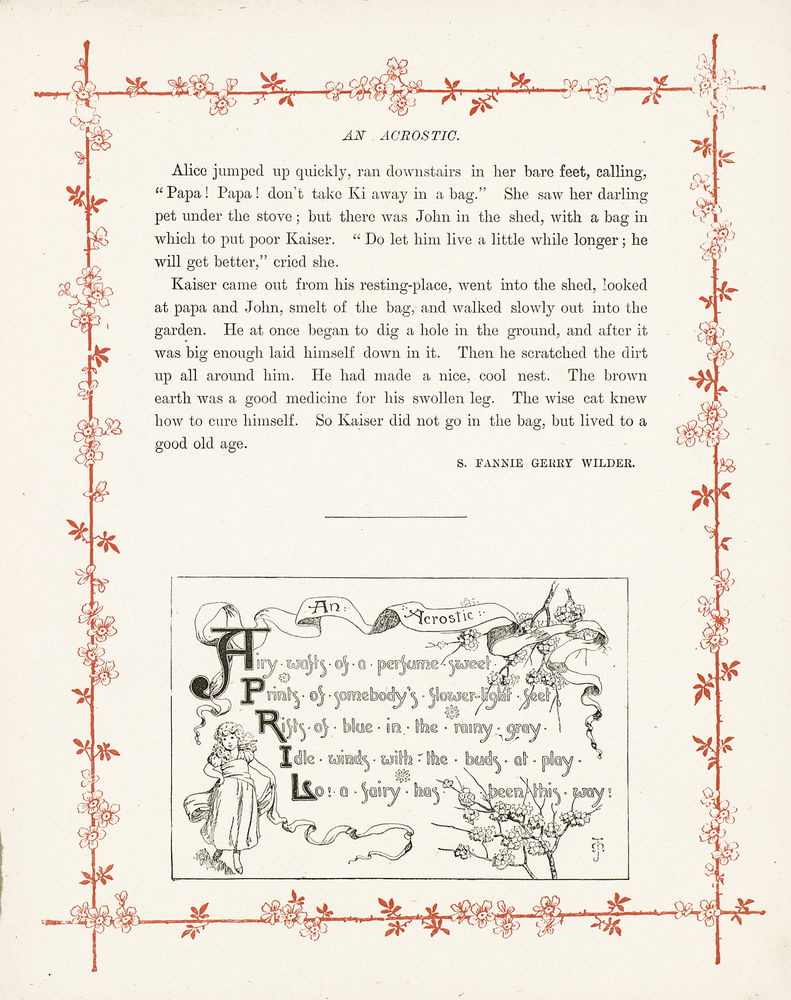 AN ACROSTIC.
Alice jumped up quickly, ran downstairs in her bare feet, calling,
“Papa! Papa! don’t take Ki away in a bag.” She saw her darling
pet under the stove; but there was John in the shed, with a bag in
which to put poor Kaiser. “Do let him live a little while longer; he
will get better,” cried she.
Kaiser came out from his resting-place, went into the shed, looked
at papa and John, smelt of the bag, and walked slowly out into the
garden. He at once began to dig a hole in the ground, and after it
was big enough laid himself down in it. Then he scratched the dirt
up all around him. He had made a nice, cool nest. The brown
earth was a good medicine for his swollen leg. The wise cat knew
how to cure himself. So Kaiser did not go in the bag, but lived to a
good old age.
S. FANNIE GERRY WILDER.
An Acrostic
Airy · wafts · of · a · perfume · sweet ·
Prints · of · somebody’s · flower-light · feet ·
Rifts · of · blue · in · the · rainy · gray ·
Idle · winds · with · the · buds · at · play ·
Lo! · a · fairy · has · been · this · way!